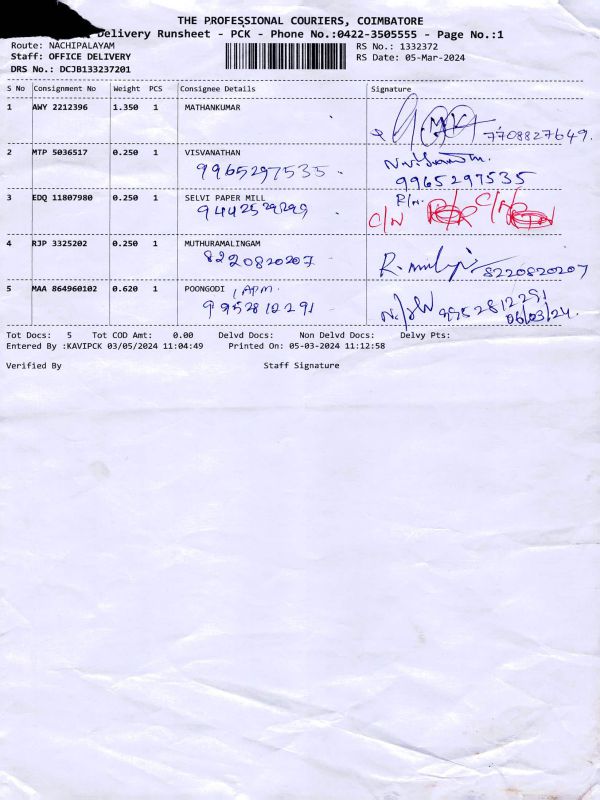 THE PROFESSIONAL COURIERS, COIMBATORE
Delivery Runsheet - PCK - Phone No.:0422-3505555 - Page No.:1
Route: NACHIPALAYAM RS No.: 1332372
Staff: OFFICE DELIVERY RS Date: 05-Mar-2024
DRS No.: DCJB133237201
S No Consignment No Weight PCS Consignee Details Signature
1 AWY 2212396 1.350 1 MATHANKUMAR
7708827649.
2 MTP 5036517 0.250 1 VISVANATHAN
9965297535. 9965297535
3 EDQ 11807980 0.250 1 SELVI PAPER MILL P/N.
9442529299. C/N C/N
4 RJP 3325202 0.250 1 MUTHURAMALINGAM
8220820207 8220820207
5 MAA 864960102 0.620 1 POONGODI , APM.
9952812291 9952812291
06/03/24.
Tot Docs: 5 Tot COD Amt: 0.00 Delvd Docs: Non Delvd Docs: Delvy Pts:
Entered By :KAVIPCK 03/05/2024 11:04:49 Printed On: 05-03-2024 11:12:58
Verified By Staff Signature